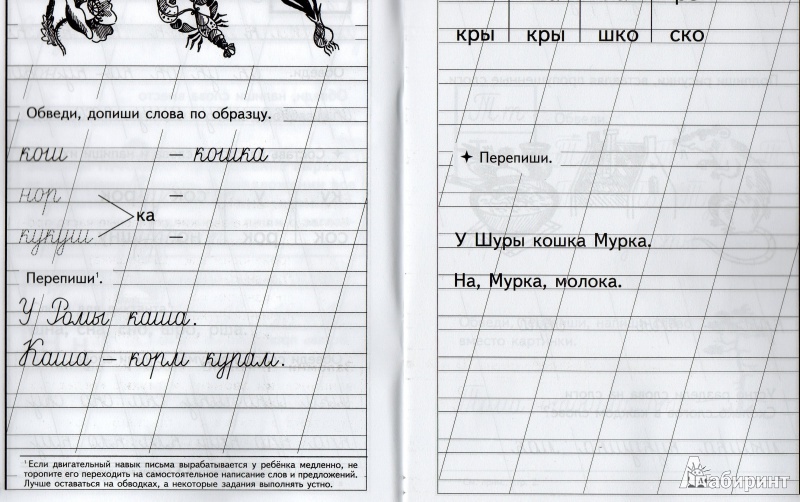 Обведи, допиши слова по образцу.
кош – кошка
нор –
ка
кукуш –
Перепиши¹.
У Ромы каша.
Каша – корм курам.
¹Если двигательный навык письма вырабатывается у ребёнка медленно, не
торопите его переходить на самостоятельное написание слов и предложений.
Лучше оставаться на обводках, а некоторые задания выполнять устно.
кры кры шко ско
Перепиши.
У Шуры кошка Мурка.
На, Мурка, молока.
Лабиринт